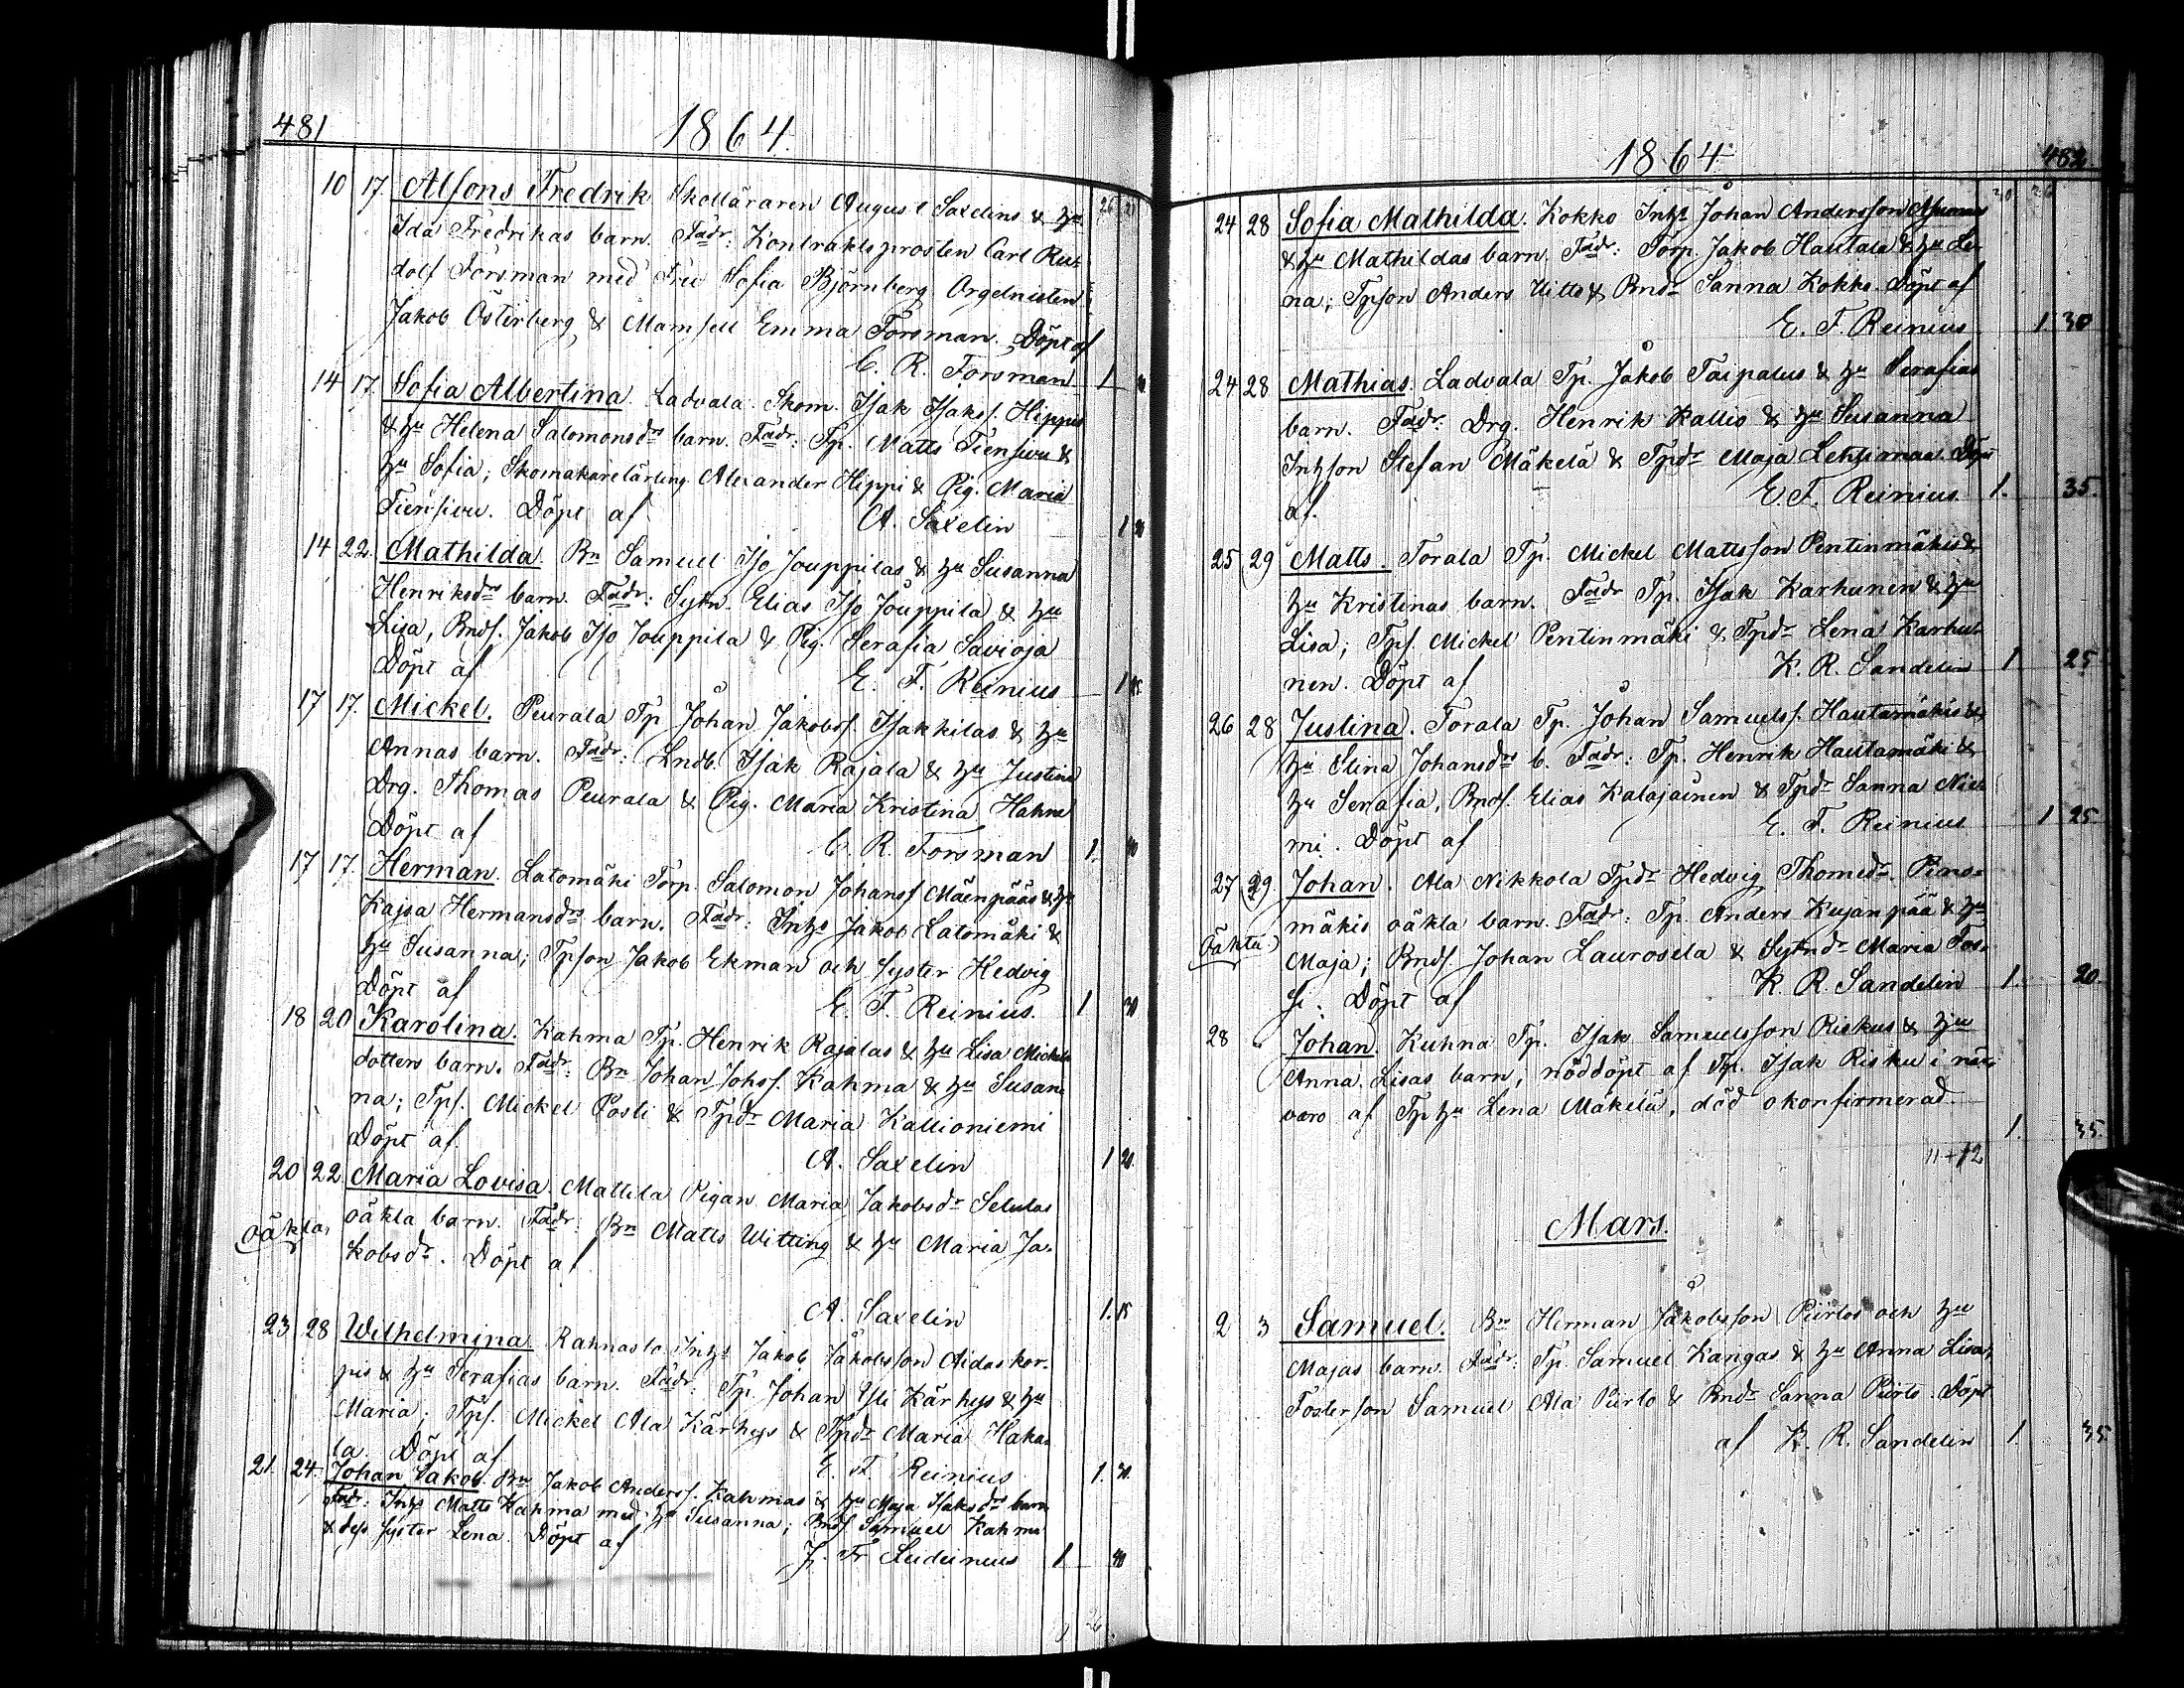 481
1864.
10 17. Alfons Fredrik Skolläraren August Saxelins & hu
Ida Fredrikas barn. Fadr: Kontraktsprosten Carl Ru-
dolf Forsman med Fru Sofia Björnberg Orgelnisten
Jakob Österberg & Mamsell Emma Forsman. Döpt af
C. R. Forsman 1
14 17. Sofia Albertina. Ladvala Skom. Isak Isakss. Hippis
& hu Helena Salomonsdrs barn. Fadr: Tp. Matts Tiensivu &
hu Sofia; Skomakarelärling Alexander Hippi & Pig. Maria
Tiensivu. Döpt af A. Saxelin 1
14 22. Mathilda. Bn Samuel Iso Jouppilas & hu Susanna
Henriksdrs barn. Fadr: Sytn. Elias Iso Jouppila & hu
Lisa, Bnds. Jakob Iso Jouppila & Pig. Serafia Savioja
Döpt af E. F. Reinius 1
17 17. Mickel. Peurala Tp Johan Jakobss. Isakkilas & hu
Annas barn. Fadr: Lndb. Isak Rajala & hu Justina
Drg. Thomas Peurala & Pig. Maria Kristina Hahne
Döpt af C. R. Forsman 1.
17 17. Herman. Latomäki Torp. Salomon Johanss Mäenpääs & hu
Kajsa Hermansdrs barn. Fadr: Inhs Jakob Latomäki &
hu Susanna; Tpson Jakob Ekman och syster Hedvig
Döpt af E. F. Reinius. 1 30
18 20 Karolina. Kahma Tp. Henrik Rajalas & hu Lisa Mickels
dotters barn. Fadr: Bn Johan Johss. Kahma & hu Susan-
na; Tps. Mickel Posti & Tpdr Maria Kallioniemi
Döpt af A. Saxelin 1 20.
20 22 Maria Lovisa. Mattila Pigan Maria Jakobsdr Selulas
oäkta oäkta barn. Fadr: Bn Matts Witting & hu Maria Ja-
kobsdr. Döpt af
A. Saxelin 1. 15
23 28 Wilhelmina. Rahnasto Inhs Jakob Jakobsson Aidaskor-
pis & hu Serafias barn. Fadr: Tp. Johan Yli Kärhys & hu
Maria; Tps. Mickel Ala Kärhys & Tpdr Maria Haka-
la. Döpt af E. F. Reinius 1. 30.
21. 24. Johan Jakob. Bn Jakob Anderss. Kahmas & hu Maja Isaksdrs barn
Fadr: Inhs Matts Kahma med hu Susanna; Bnds Samuel Kahma
& dess syster Lena. Döpt af
1 40
1864. 482
24 28 Sofia Mathilda. Kokko Inhs Johan Andersson
& hu Mathildas barn. Fadr: Torp. Jakob Hautala & hu Le-
na; Tpson Anders Uitto & Bndr Sanna Kokko. Döpt af
E. F. Reinius 1. 30
24 28 Mathias. Ladvala Tp. Jakob Taipalus & hu Serafias
barn. Fadr: Drg. Henrik Kallio & hu Susanna
Inhson Stefan Mäkelä & Tpdr Maja Lehtimaa. Döpt
af. E. F. Reinius 1. 35.
25 29 Matts. Torala Tp. Mickel Mattsson Pentinmäkis &
hu Kristinas barn. Fadr Tp. Isak Karhunen & hu
Lisa; Tps. Mickel Pentinmäki & Tpdr Lena Karhu-
nen. Döpt af K. R. Sandelin 1. 25
26 28 Justina. Torala Tp. Johan Samuelss. Hautamäkis &
hu Stina Johansdrs b. Fadr: Tp. Henrik Hautamäki &
hu Serafia, Bnds. Elias Kalajainen & Tpdr Sanna Nie-
mi. Döpt af E. F. Reinius 1 25
27 29. Johan. Ala Nikkola Tpdr Hedvig Thomedr.
oäkta mäkis oäkta barn. Fadr: Tp. Anders Kujanpää & hu
Maja; Bnds. Johan Laurosela & Sytndr Maria
Döpt af K. R. Sandelin 1. 20.
28 Johan. Kuhna Tp. Isak Samuelsson Riskus & hu
Anna Lisas barn; nöddöpt af Tp. Isak Risku i när-
varo af Tp hu Lena Mäkelä, död okonfirmerad
1. 35.
11+12
Mars.
2 3 Samuel. Bn Herman Jakobsson Piirtos och hu
Majas barn. Fadr: Tp. Samuel Kangas & hu Anna Lisa,
Fosterson Samuel Ala Piirto & Bndr Sanna Piirto. Döpt
af K. R. Sandelin 1. 35.